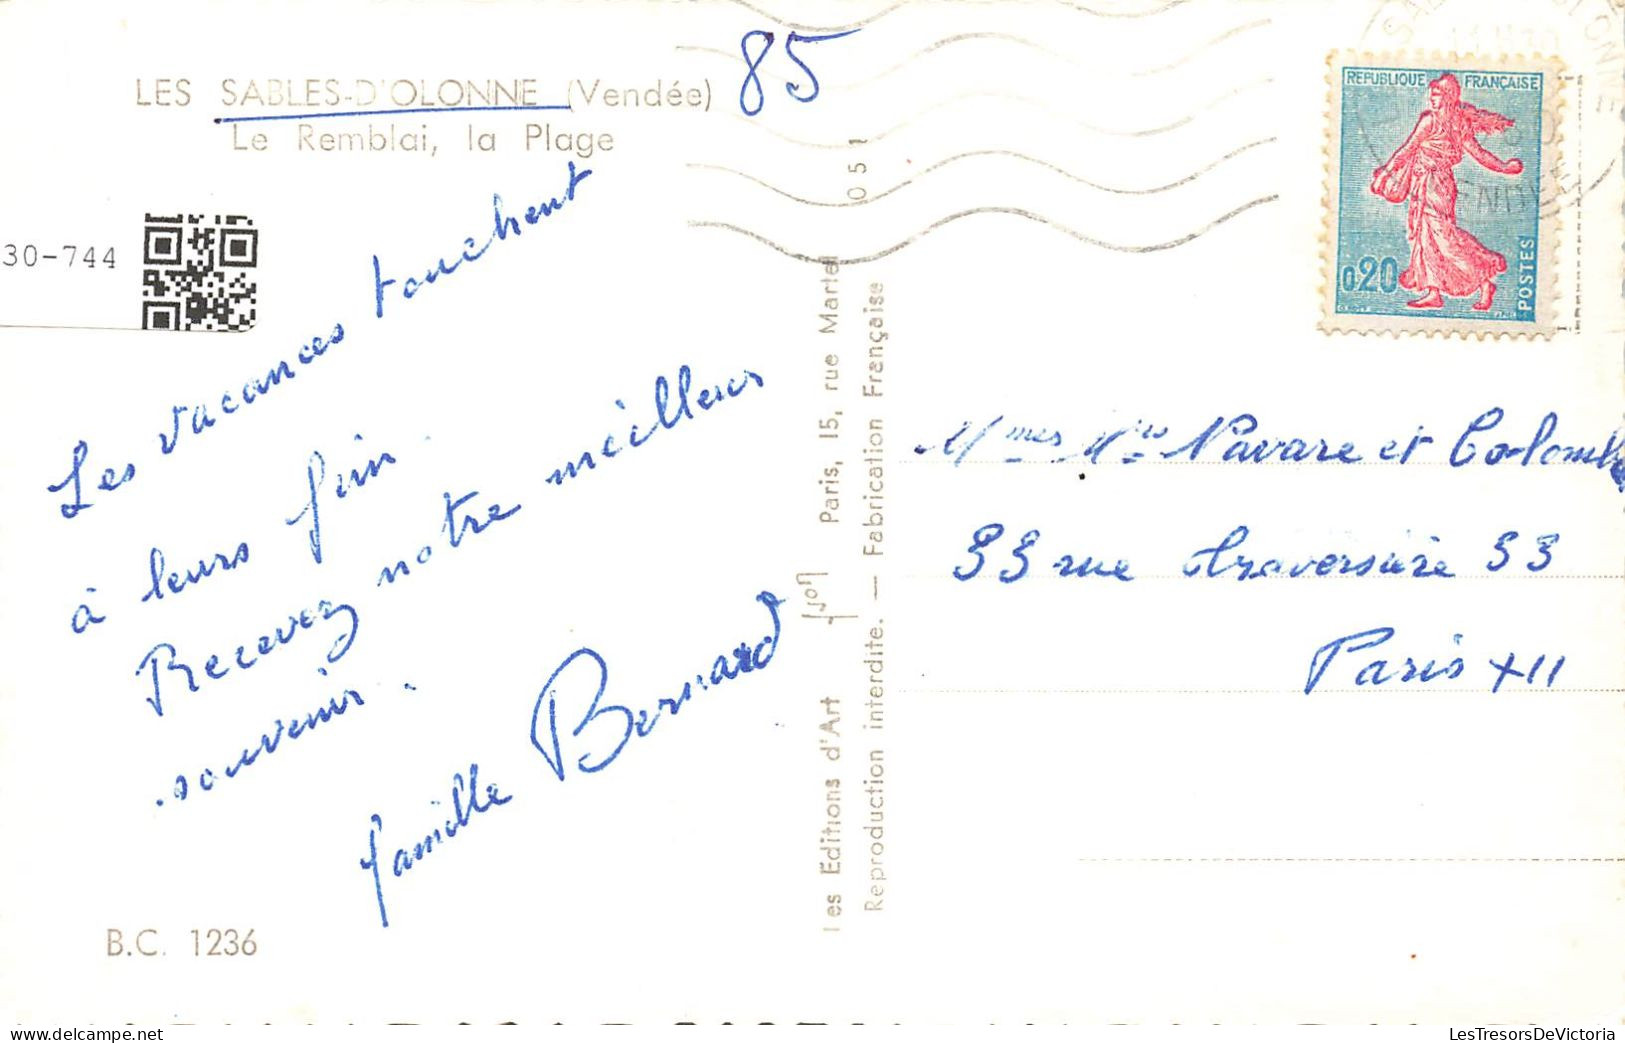 LES SABLES-D'OLONNE (Vendée)
85
Le Remblai, la Plage
30-744
Les vacances touchent
à leurs fin.
Recevez notre meilleur
souvenir.
famille Bernard
B.C. 1236
Les Editions d'Art Yvon Paris, 15, rue Martel
051
Reproduction interdite. — Fabrication Française
11 H30
REPUBLIQUE FRANÇAISE
0,20
POSTES
Mmes Navare et Colomb
33 rue traversière 33
Paris XII
LesTresorsDeVictoria.com
LesTresorsDeVictoria